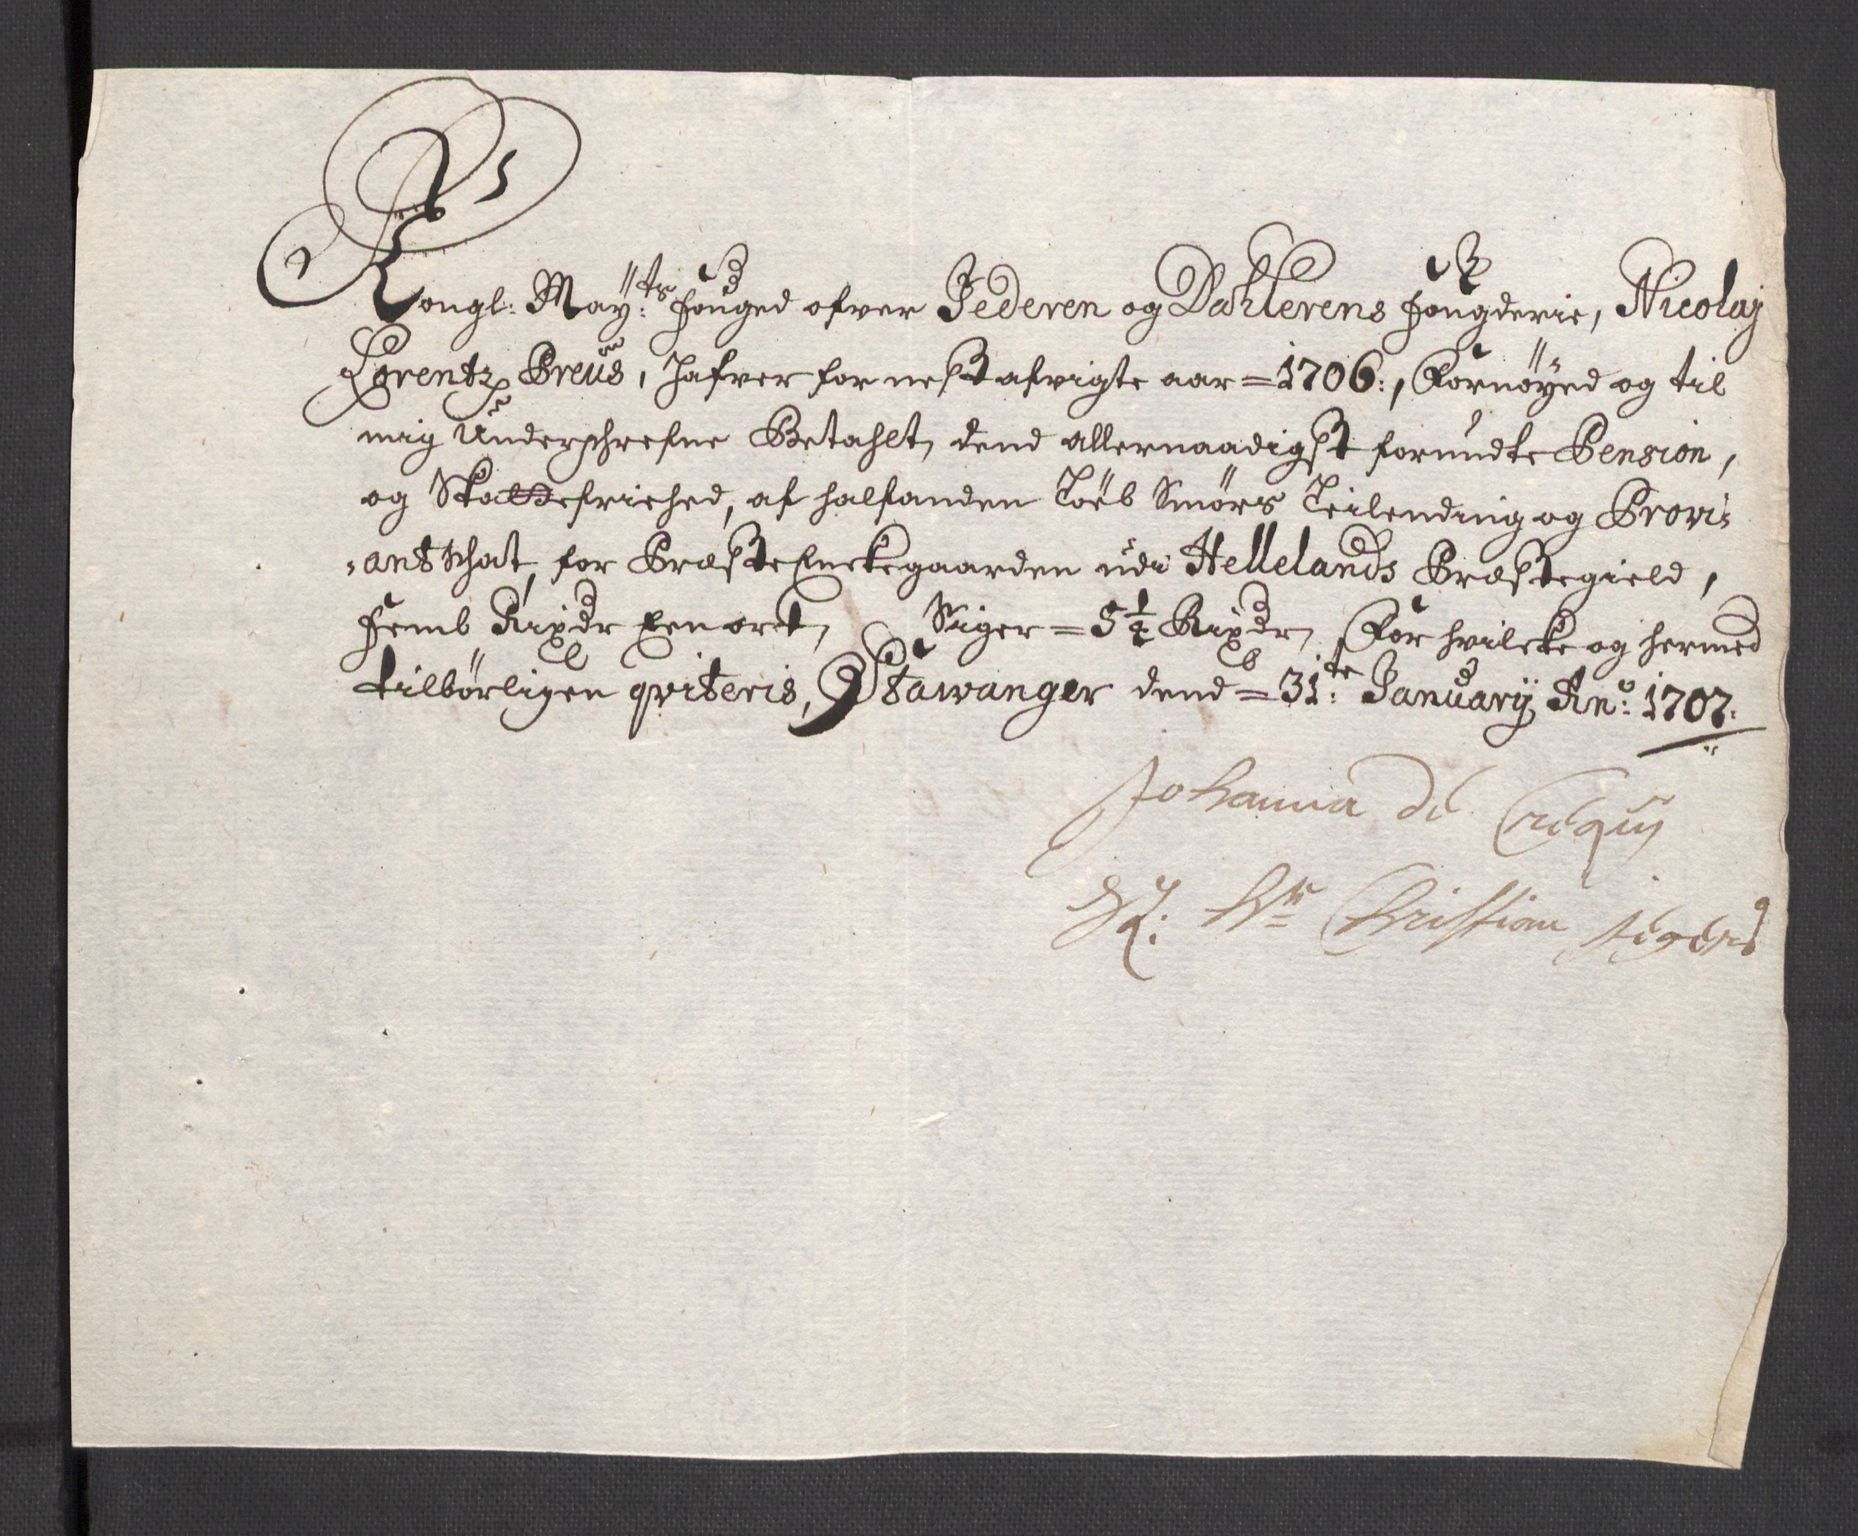 Kongl: May:ts fouged ofver Jederen og Dahlerens fougderie, Nicolaj
Lorentz Preüs, hafver for nest afvigte aar = 1706:, Fornøyed og til
mig Underschrefne Betahlt, dend allernaadigst forundte Pension,
og Skattefriehed, af halfanden Löeb Smörs Leilending og Provi=
=ant Schat, for Præste Enckegaarden udi Hellelands Præstegield,
femb Rixdr Een ort, Siger = 5 1/4 Rixdr, For hvilcke og hermed
tilbørligen qviteris, Stawanger dend = 31:te Januarij An:o 1707:
Johanna de Crequy
Sl: Hr Christian